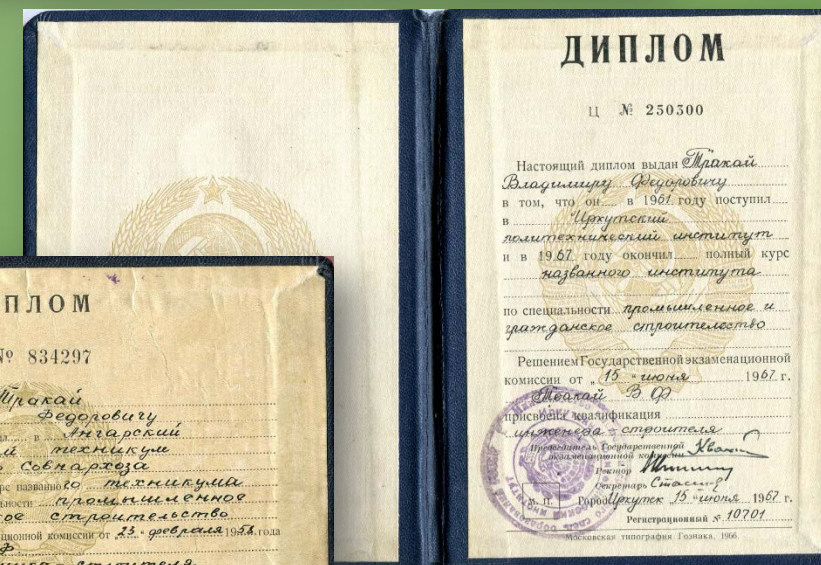 ДИПЛОМ
Ц № 250300
Настоящий диплом выдан Тракай
Владимиру Федоровичу
в том, что он в 1961 году поступил
в Иркутский
политехнический институт
и в 1967 году окончил полный курс
названного института
по специальности промышленное и
гражданское строительство
Решением Государственной экзаменационной
комиссии от „15“ июня 1967 г.
Тракай В. Ф.
присвоена квалификация
инженера строителя
Председатель Государственной
экзаменационной комиссии
Ректор
Секретарь
М. П. Город Иркутск 15 "июня 1967 г.
Регистрационный № 10701
Московская типография Гознака. 1966.
ПЛОМ
№ 834297
Тракай
Федоровичу
в Ангарский
й техникум
Совнархоза
рс названного техникума
ьности промышленное
ое строительство
ционной комиссии от „23“ февраля 1958 года